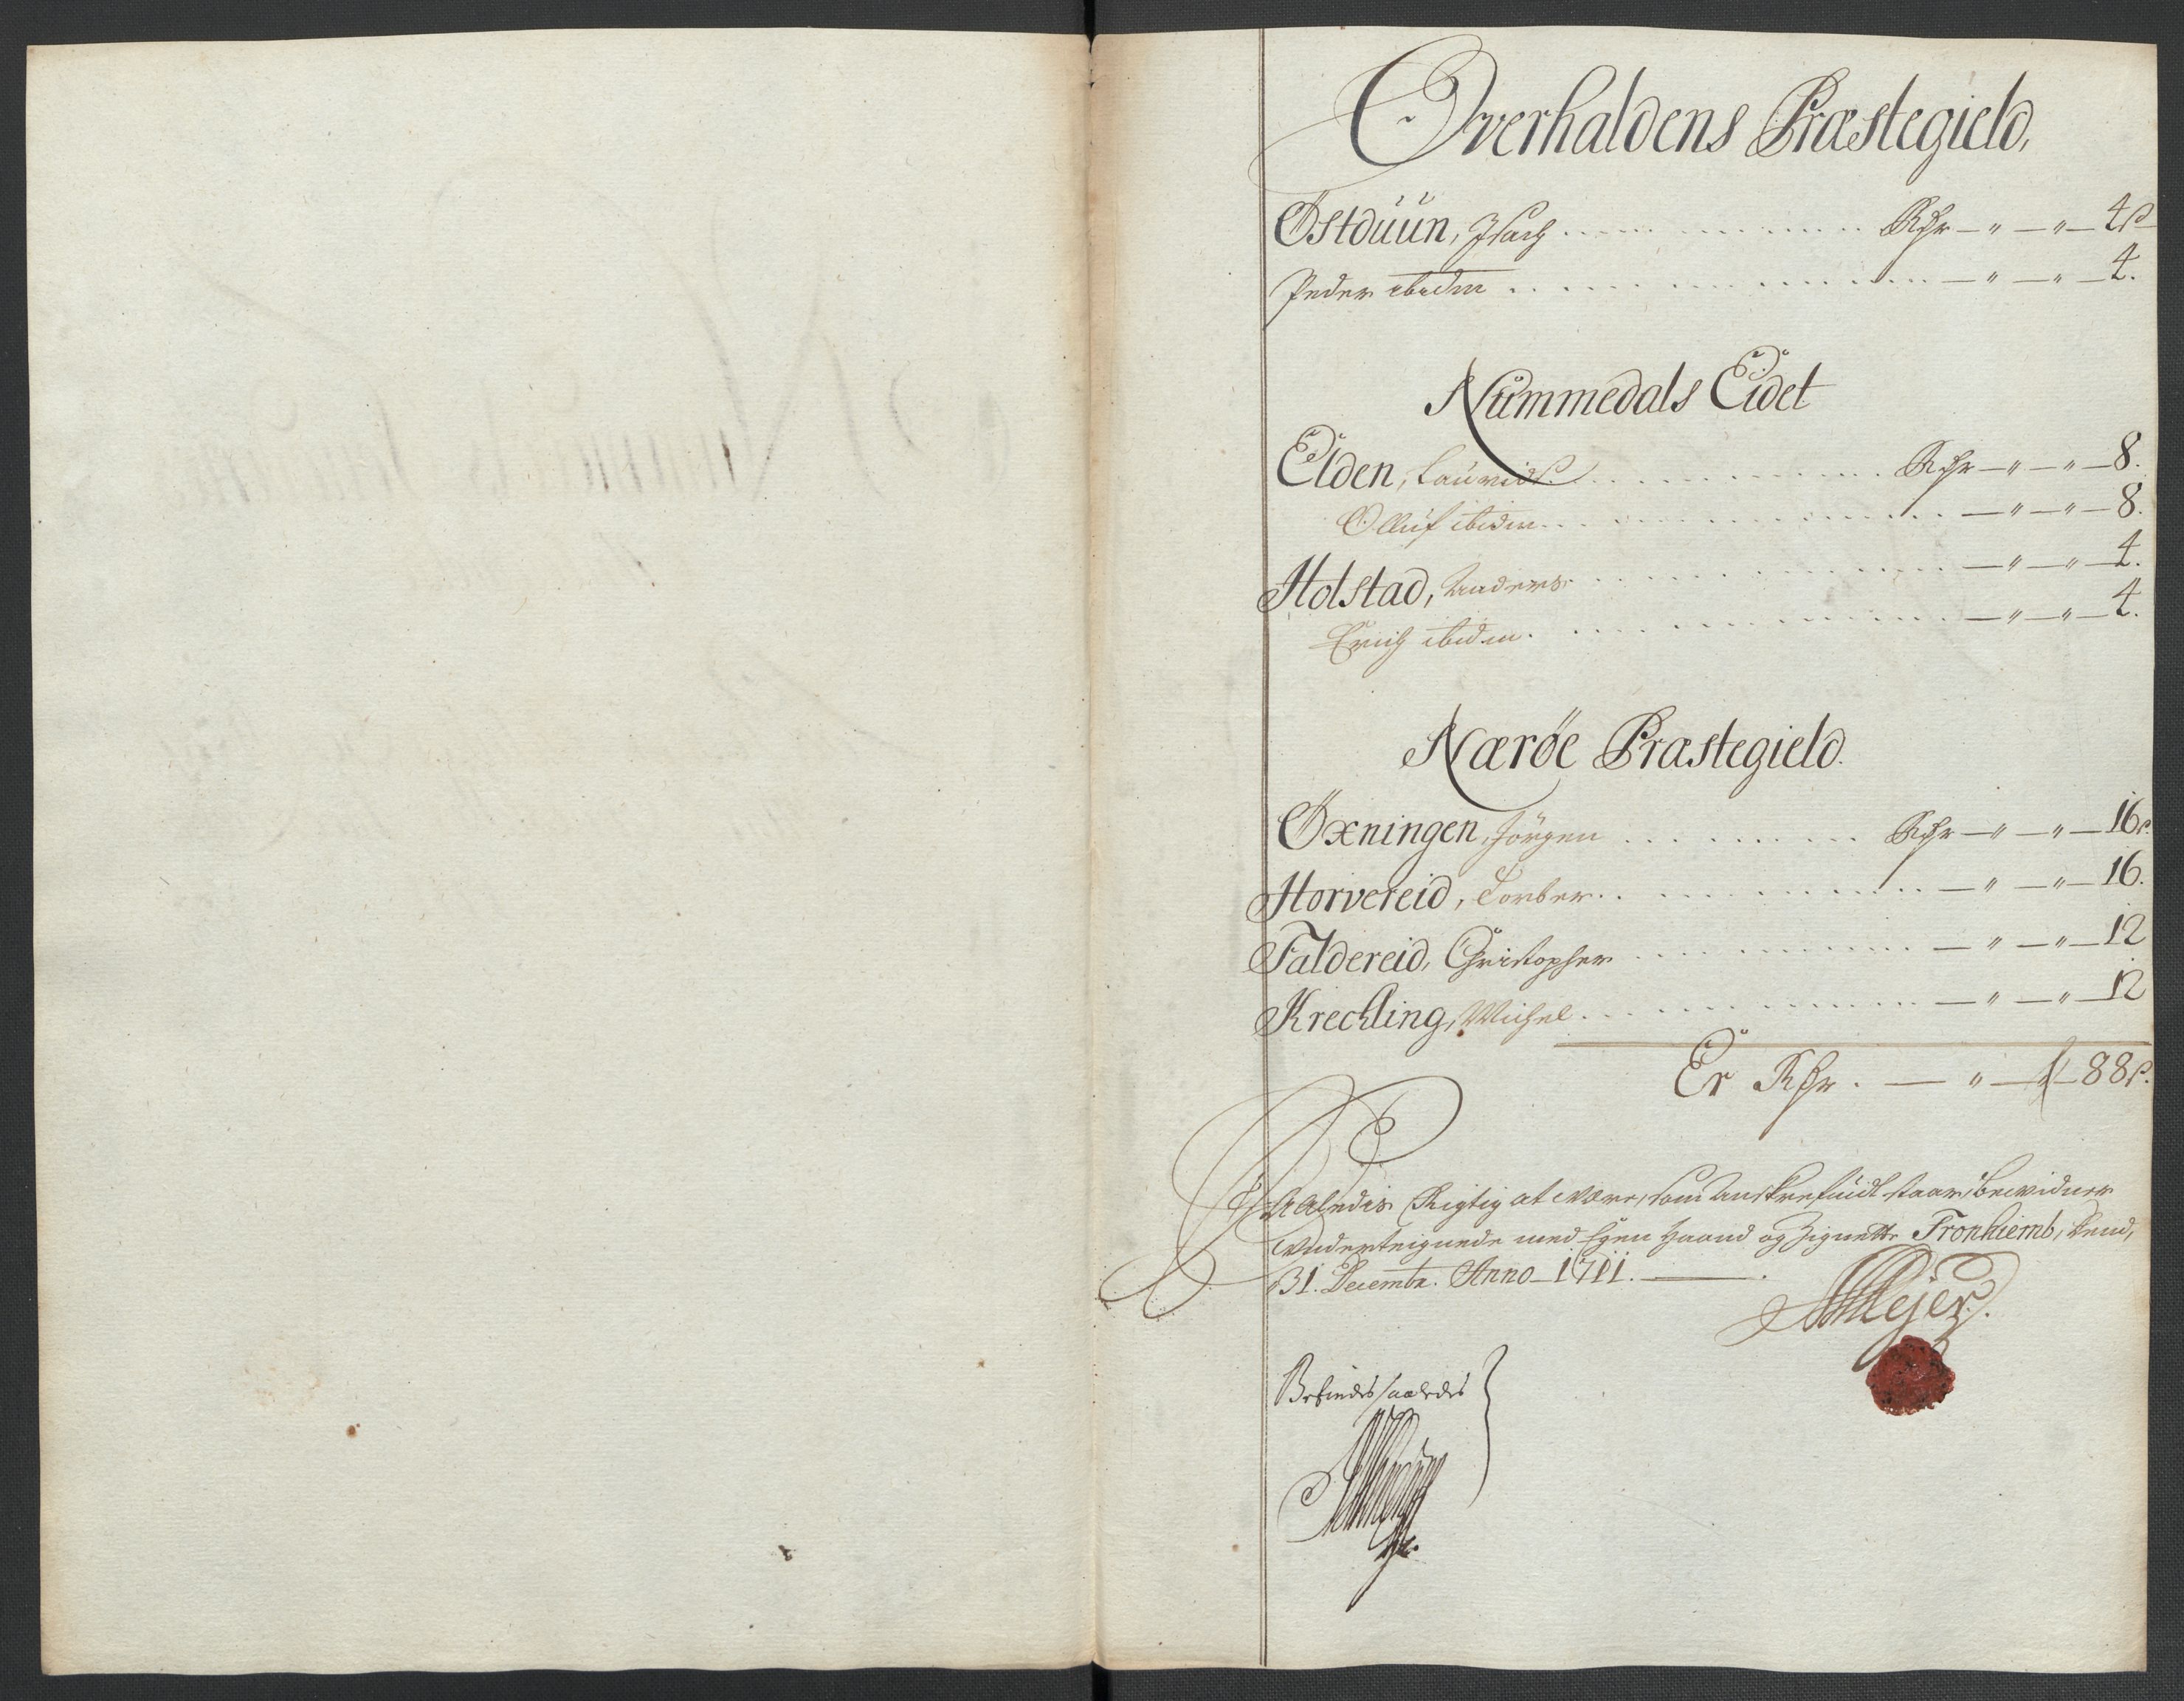 Overhaldens Præstegield,
Østduun, Isach . . . . . Rdr — " — " — 4 s
Peder ibidem . . . . . — " — " — 4.
Nummedals Eidet
Elden, Lauridz . . . . . Rdr — " — " — 8.
Olluf ibidem . . . . . — " — " — 8.
Holstad, Anders . . . . . — " — " — 4.
Erich ibidem . . . . . — " — " — 4.
Nærøe Præstegield.
Øxningen, Jörgen . . . . . Rdr — " — " — 16 s.
Horvereid, Torber . . . . . — " — " — 16.
Faldereid, Christopher . . . . . — " — " — 12
Kreckling, Michel . . . . . — " — " — 12
Er Rdr. — " — 88 s.
Saaledis Rigtig at være, som anskrefuidt staar, bevidner
underteignede med Egen Haand og Zignette Tronhiemb, dend,
31. Decembr. Anno 1711.
Mejer.
Befindes saaledes